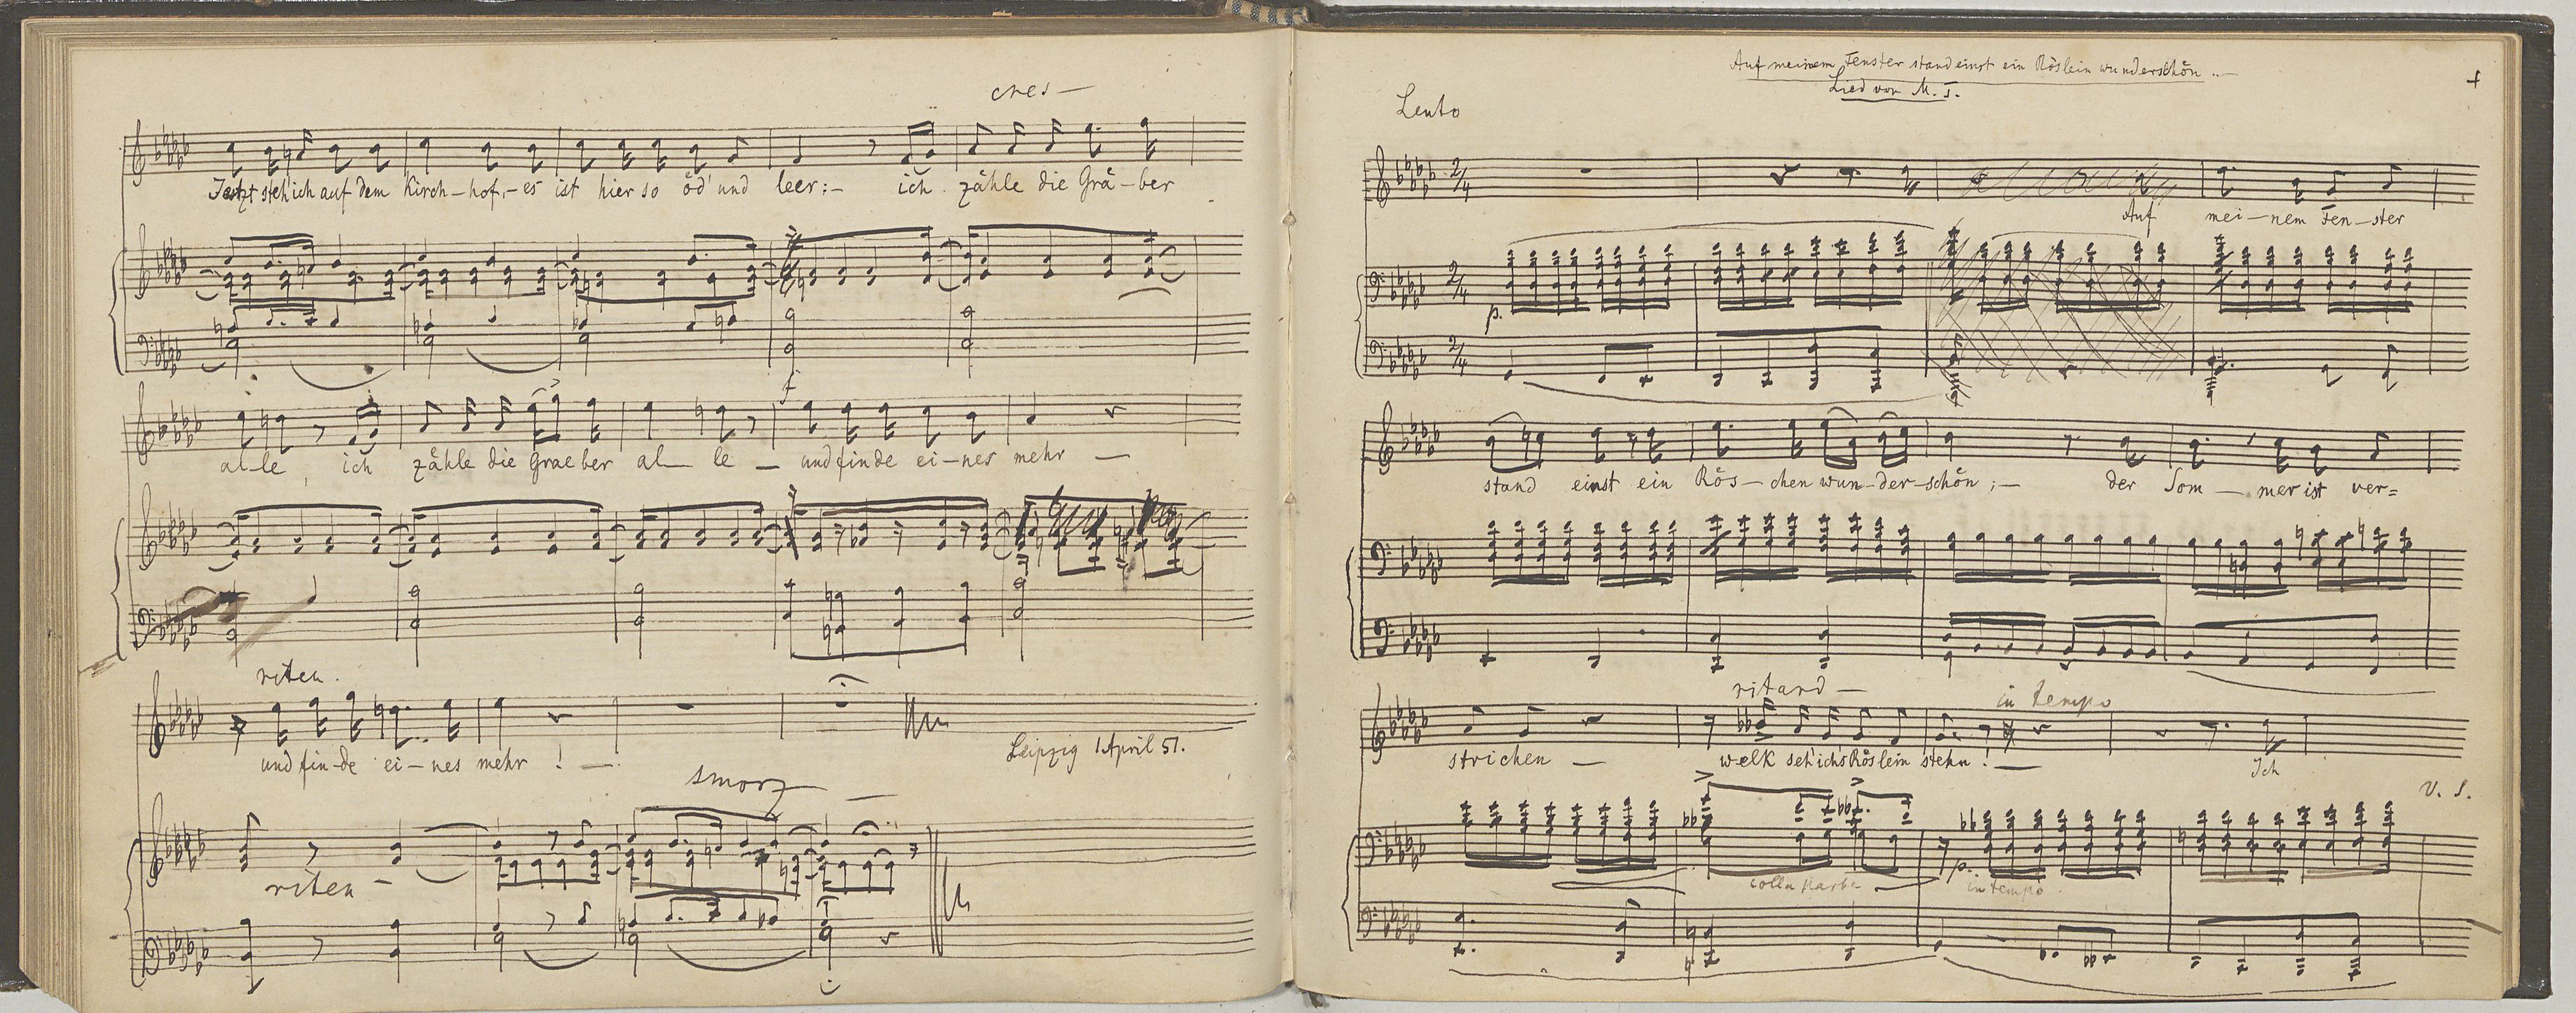 cres —
Jetzt steh' ich auf dem Kirch-hof,- es ist hier so öd' und leer;- ich zähle die Grä-ber
f
al-le, ich zähle die Graeber al- le — und finde ei-nes mehr —
riten.
und fin-de ei-nes mehr ! —
Leipzig 1 April 51.
smorz —
riten -
Auf meinem Fenster stand einst ein Röslein wunderschön ..—
Lied von M. J.
Lento
2/4
Auf mei-nem Fen-ster
2/4
p.
2/4
stand einst ein Rös-chen wun-der-schön ;- der Som- mer ist ver=
ritard —
in tempo
strichen — welk seh' ichs Röslein stehn! — Ich
V. S.
colla parte
p. in tempo